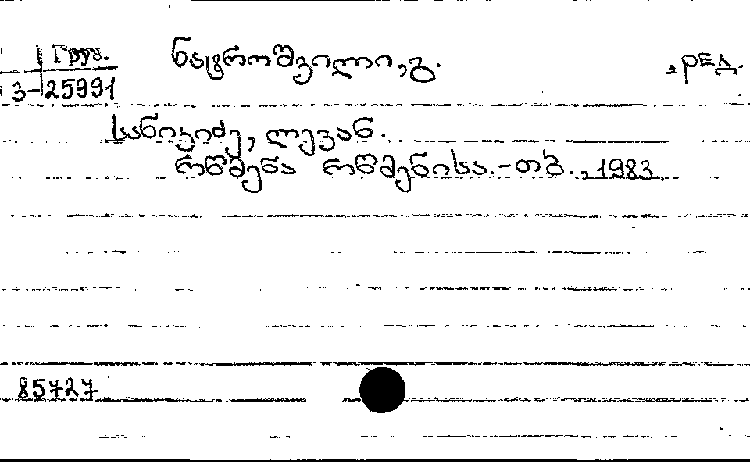 Груз.
3-25991
ნატროშვილი, გ. , ред.
სანიკიძე, ლევან.
რწმენა რწმენისა. - თბ., 1983
85727